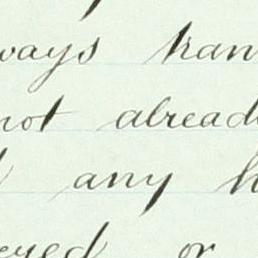 ways han
not alread
any h
ered or